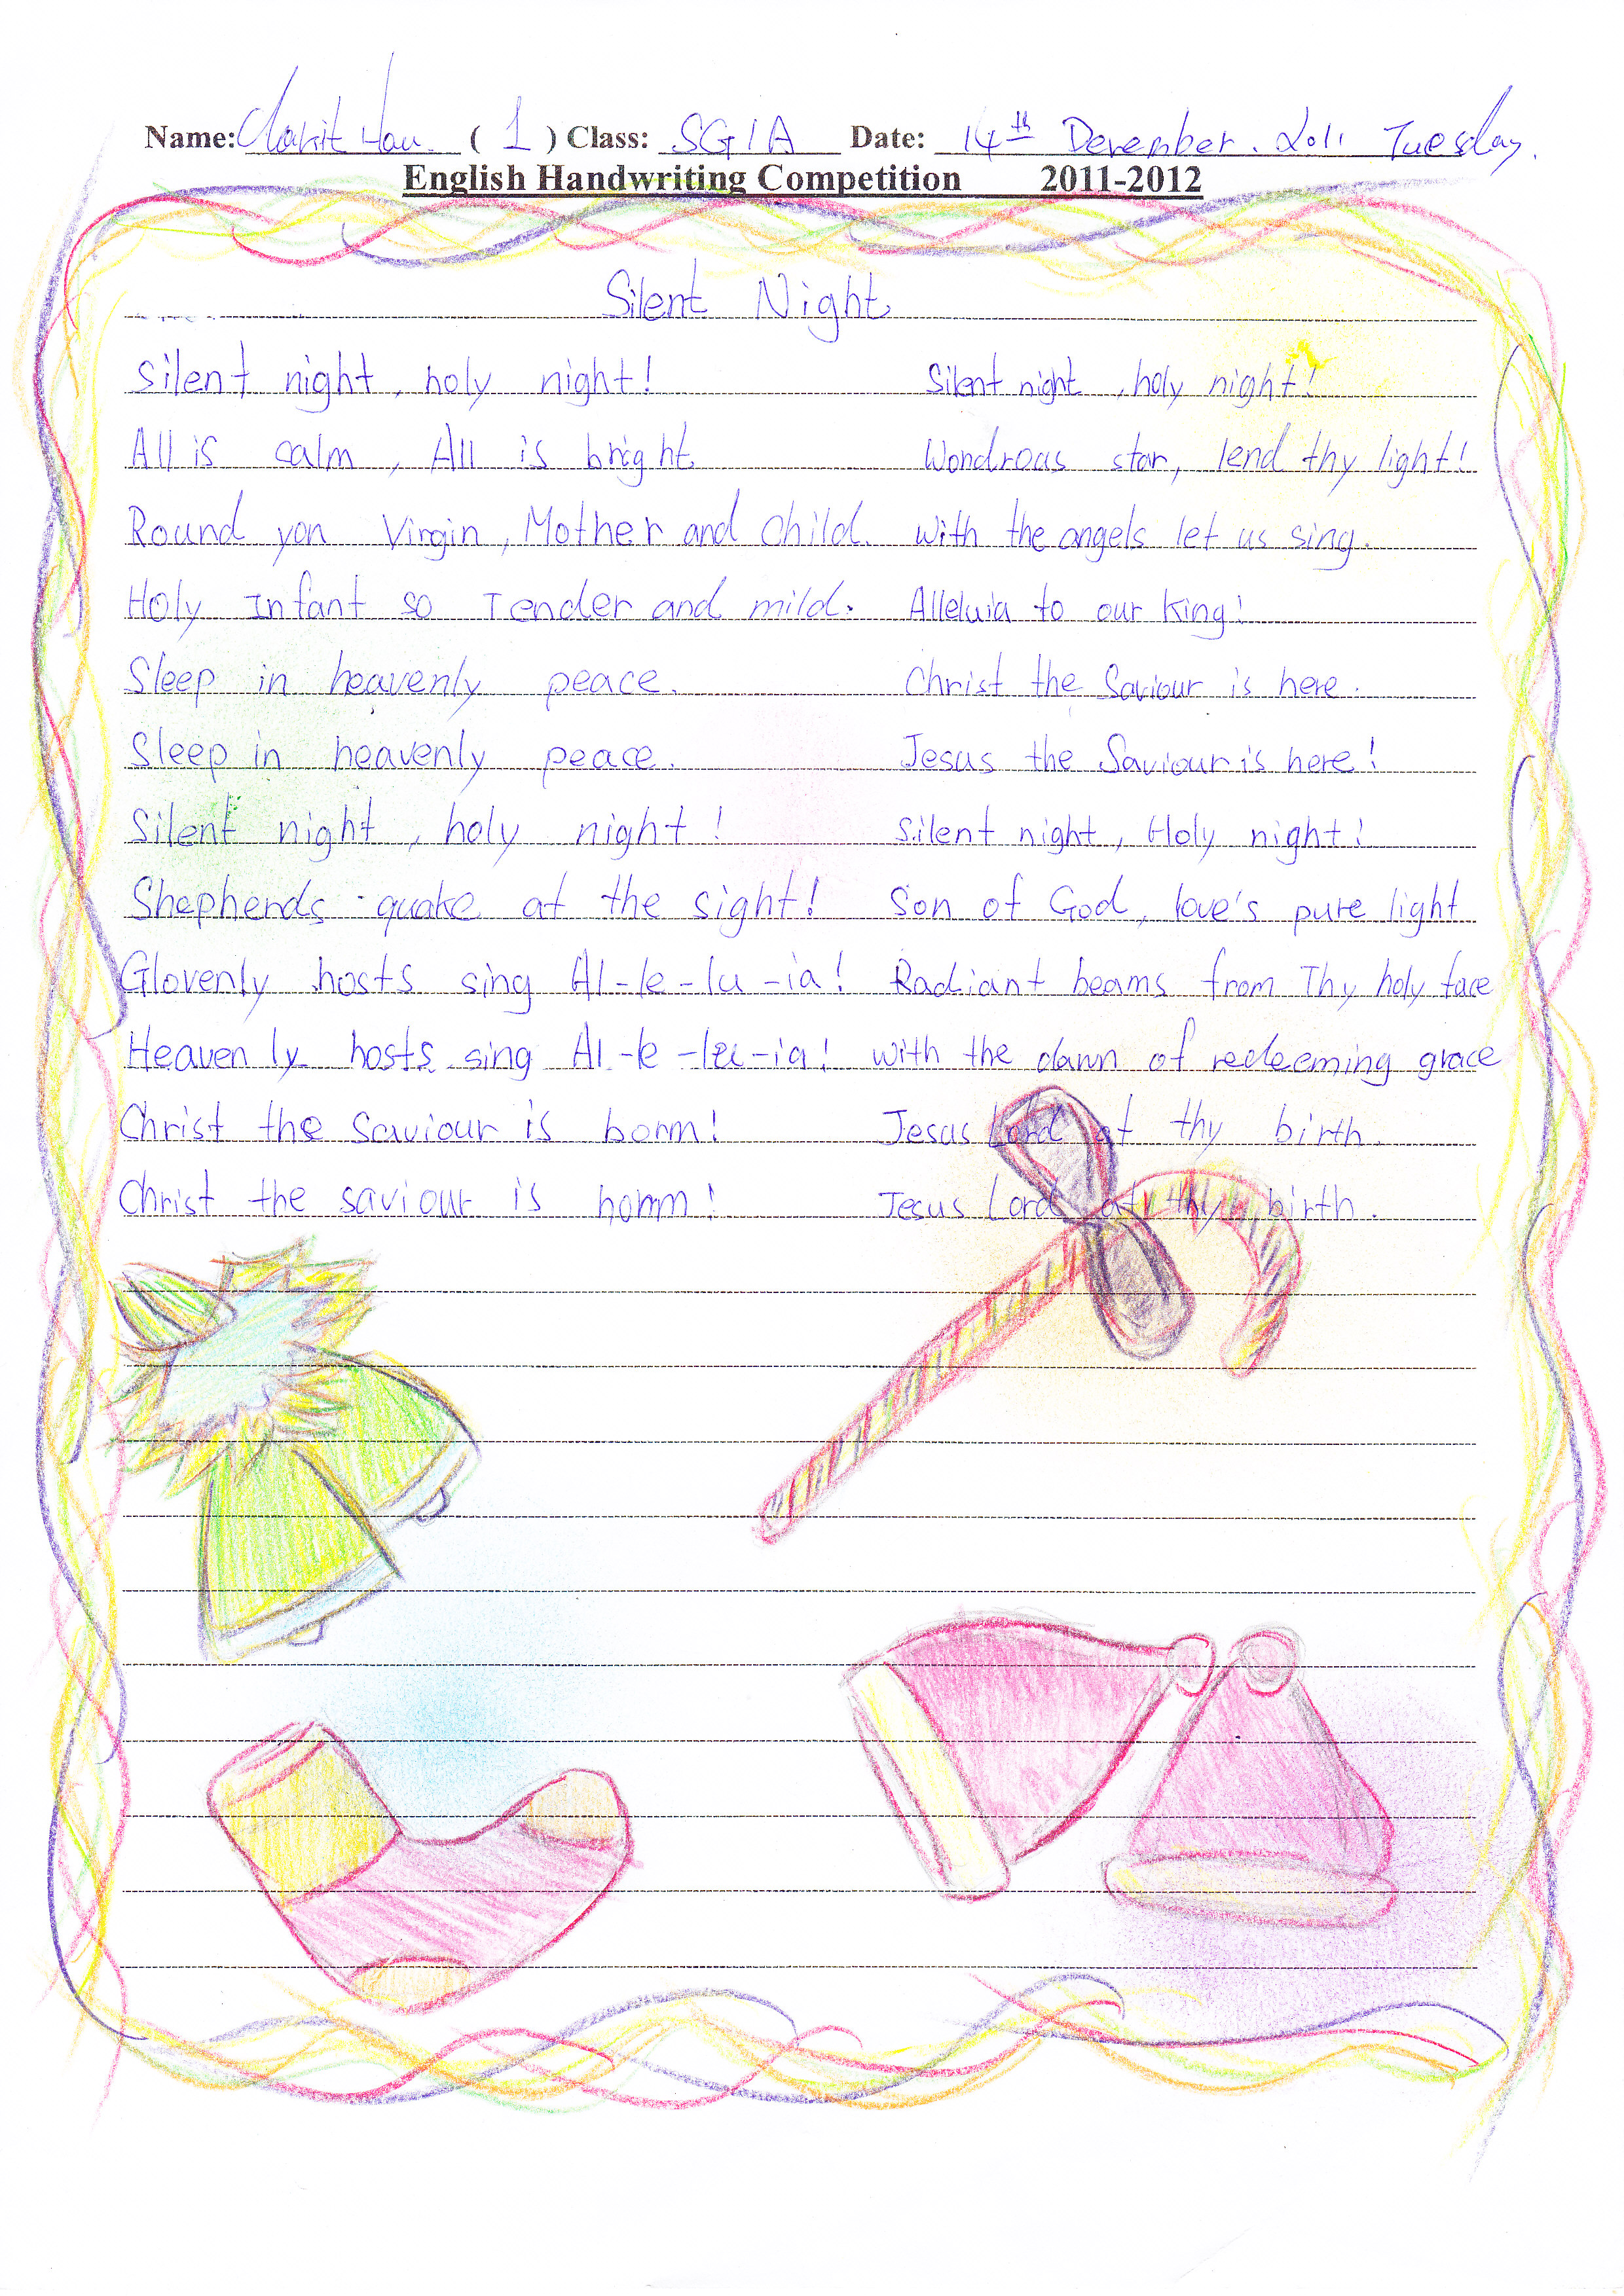 Name: Hau ( 1 ) Class: SG1A Date: 14th Devember. 2011 Tuesday.
English Handwriting Competition 2011-2012
Silent Night
Silent night, holy night!
All is calm, All is bright
Round yon Virgin, Mother and child.
Holy Infant so Tender and mild.
Sleep in heavenly peace.
Sleep in heavenly peace.
Silent night, holy night!
Shepherds quake at the sight!
Glovenly hosts sing Al-le-lu-ia!
Heavenly hosts sing Al-le-lu-ia!
Christ the Saviour is bonm!
Christ the saviour is honm!
Silent night, holy night!
Wondrous star, lend thy light!
With the angels let us sing.
Alleluia to our King!
Christ the Saviour is here.
Jesus the Saviour is here!
Silent night, Holy night!
Son of God, love's pure light
Radiant beams from Thy holy face
with the dawn of redeeming grace
Jesus Lord at thy birth.
Jesus Lord at thy birth.